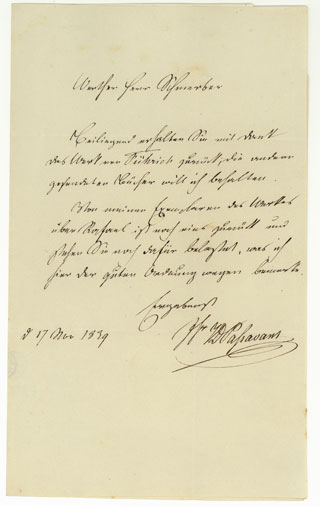 Werther Herr Schmerber
Beiliegend erhalten Sie mit Dank
das Werk von Führich zurück, die andern
gesendeten Bücher will ich behalten.
Von meinen Exemplaren des Werkes
über Rafael ist noch eins zurück und
stehen Sie noch dafür belastet, was ich
hier der guten Ordnung wegen bemerke.
Ergebenst
d 17 Nov 1839
Passavant